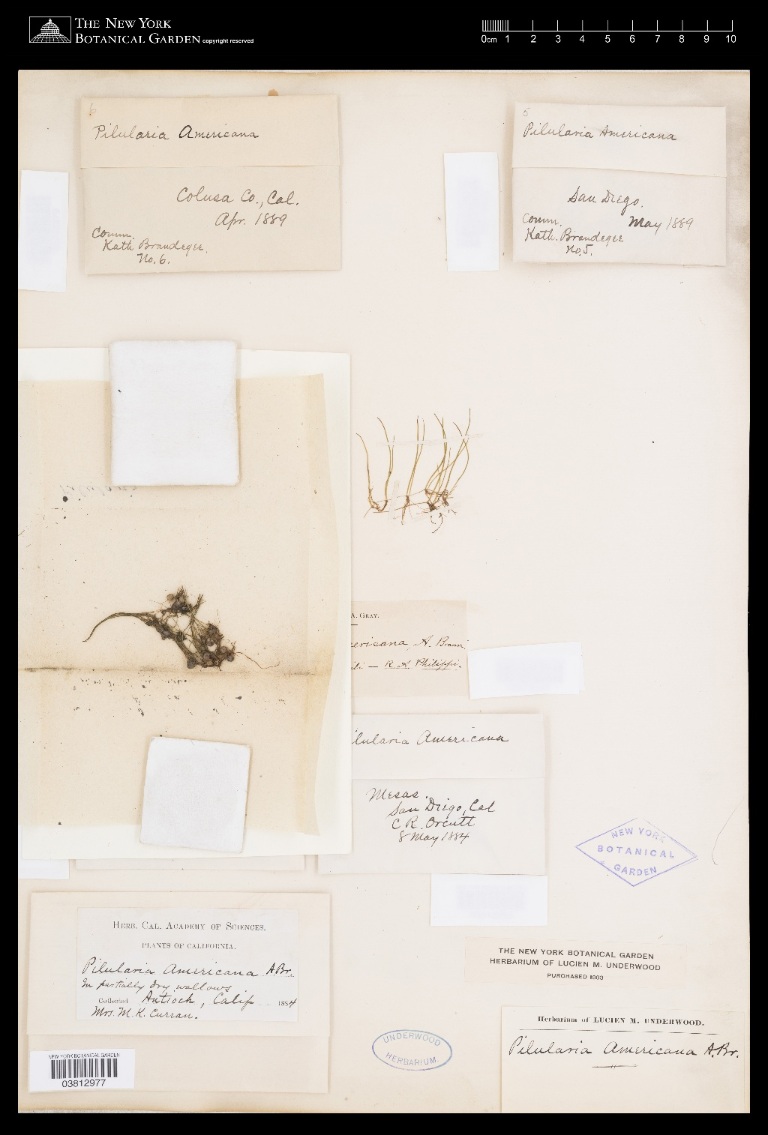 THE NEW YORK
BOTANICAL GARDEN copyright reserved
0cm 1 2 3 4 5 6 7 8 9 10
6
Pilularia Americana
Colusa Co., Cal.
Apr. 1889
Comm.
Kath. Brandegee.
No. 6.
5
Pilularia Americana
San Diego.
May 1889
Comm.
Kath. Brandegee
No. 5.
A. GRAY.
ericana, A. Braun
— R. A. Philippi.
ilularia Americana
Mesas.
San Diego, Cal
C. R. Orcutt
8 May 1884
NEW YORK
BOTANICAL
GARDEN
HERB. CAL. ACADEMY OF SCIENCES.
PLANTS OF CALIFORNIA.
Pilularia Americana A.Br.
In partially dry wallows
Collected Antioch, Calif. 1884
Mrs. M. K. Curran.
THE NEW YORK BOTANICAL GARDEN
HERBARIUM OF LUCIEN M. UNDERWOOD
PURCHASED
UNDERWOOD
HERBARIUM.
Herbarium of LUCIEN M. UNDERWOOD.
Pilularia Americana A.Br.
NEW YORK BOTANICAL GARDEN
03812977